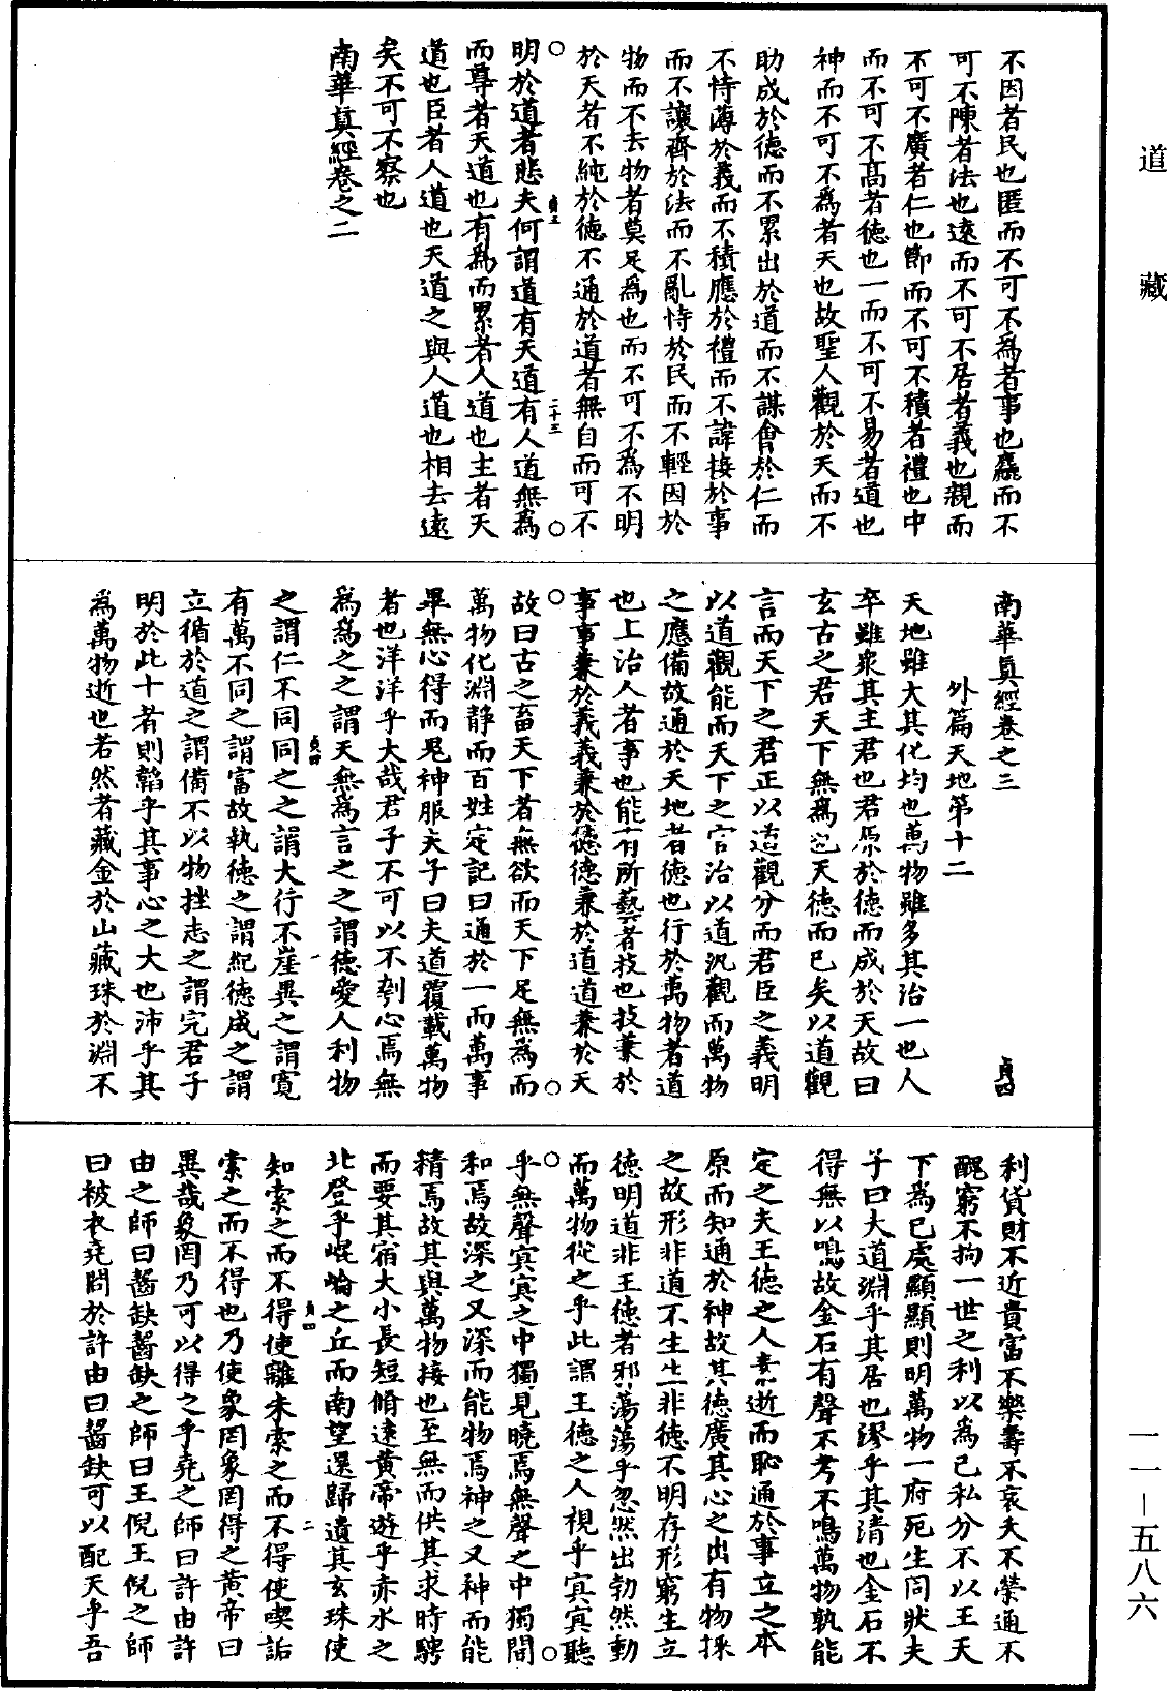 道藏
不因者民也匿而不可不為者事也麤而不
可不陳者法也遠而不可不居者義也親而
不可不廣者仁也節而不可不積者禮也中
而不可不髙者德也一而不可不易者道也
神而不可不為者天也故聖人觀於天而不
助成於德而不累出於道而不謀會於仁而
不恃薄於義而不積應於禮而不諱接於事
而不讓齊於法而不亂恃於民而不輕因於
物而不去物者莫足為也而不可不為不明
於天者不純於德不通於道者無自而可不
貞五 二十三
明於道者悲夫何謂道有天道有人道無為
而尊者天道也有為而累者人道也主者天
道也臣者人道也天道之與人道也相去遠
矣不可不察也
南華真經卷之二
南華真經卷之三 貞四
外篇天地第十二
天地雖大其化均也萬物雖多其治一也人
卒雖衆其主君也君原於德而成於天故曰
玄古之君天下無為也天德而已矣以道觀
言而天下之君正以道觀分而君臣之義明
以道觀能而天下之官治以道汎觀而萬物
之應備故通於天地者德也行於萬物者道
也上治人者事也能有所藝者技也技兼於
事事兼於義義兼於德德兼於道道兼於天
故曰古之畜天下者無欲而天下足無為而
萬物化淵靜而百姓定記曰通於一而萬事
畢無心得而鬼神服夫子曰夫道覆載萬物
者也洋洋乎大哉君子不可以不刳心焉無
為為之之謂天無為言之之謂德愛人利物
貞四 一
之謂仁不同同之之謂大行不崖異之謂寬
有萬不同之謂富故執德之謂紀德成之謂
立循於道之謂備不以物挫志之謂完君子
明於此十者則韜乎其事心之大也沛乎其
為萬物逝也若然者藏金於山藏珠於淵不
利貨財不近貴富不樂壽不哀夭不榮通不
醜窮不拘一世之利以為己私分不以王天
下為已處顯顯則明萬物一府死生同狀夫
子曰夫道淵乎其居也漻乎其清也金石不
得無以鳴故金石有聲不考不鳴萬物孰能
定之夫王德之人素逝而恥通於事立之本
原而知通於神故其德廣其心之出有物採
之故形非道不生生非德不明存形窮生立
德明道非王德者邪蕩蕩乎忽然出勃然動
而萬物從之乎此謂王德之人視乎冥冥聽
乎無聲冥冥之中獨見曉焉無聲之中獨聞
和焉故深之又深而能物焉神之又神而能
精焉故其與萬物接也至無而供其求時騁
而要其宿大小長短脩遠黃帝遊乎赤水之
北登乎崐崘之丘而南望還歸遺其玄珠使
貞四 二
知索之而不得使離朱索之而不得使喫詬
索之而不得也乃使象罔象罔得之黃帝曰
異哉象罔乃可以得之乎堯之師曰許由許
由之師曰齧缺齧缺之師曰王倪王倪之師
曰被衣堯問於許由曰齧缺可以配天乎吾
一一—五八六